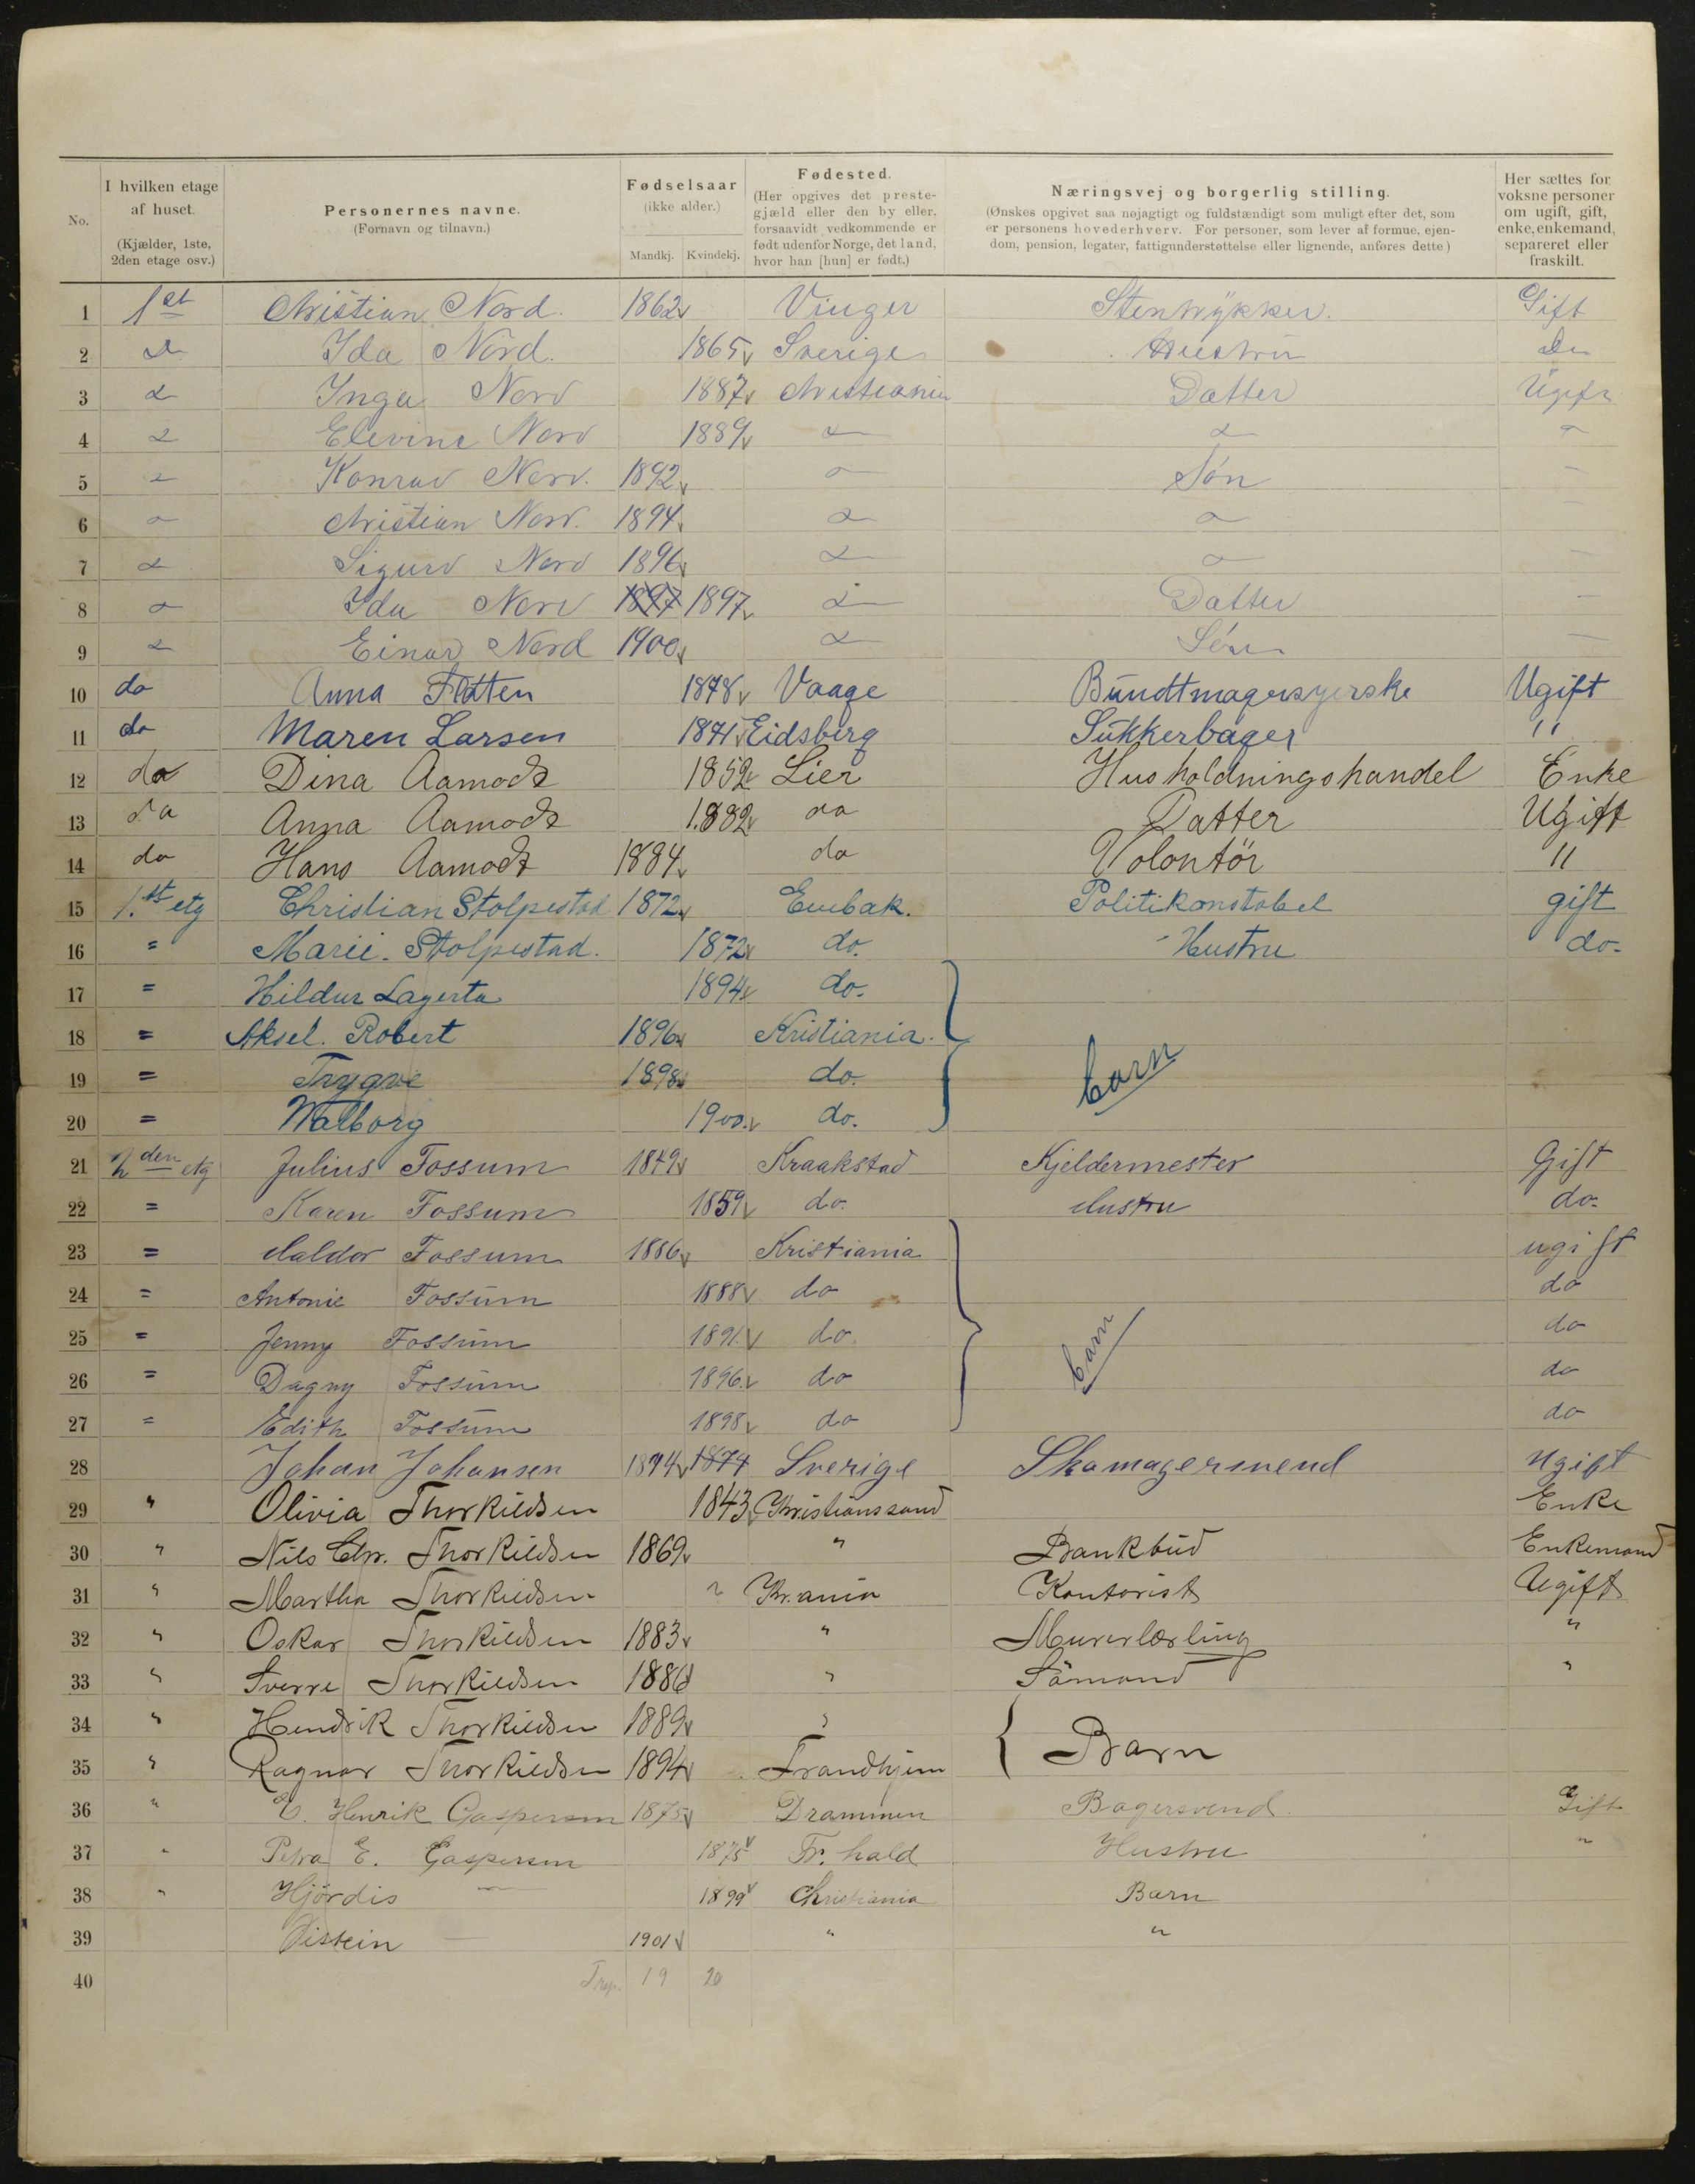 No. I hvilken etage af huset. (Kjælder, 1ste, 2den etage osv.) Personernes navne. (Fornavn og tilnavn.) Fødselsaar (ikke alder.) Mandkj. Kvindekj. Fødested. (Her opgives det prestegjæld eller den by eller, forsaavidt vedkommende er født udenfor Norge, det land, hvor han [hun] er født.) Næringsvej og borgerlig stilling. (Ønskes opgivet saa nøjagtigt og fuldstændigt som muligt efter det, som er personens hovederhverv. For personer, som lever af formue, ejendom, pension, legater, fattigunderstøttelse eller lignende, anføres dette) Her sættes for voksne personer om ugift, gift, enke, enkemand, separeret eller fraskilt.
1 1st Christian Nord. 1862 Vinger Stentrykker. Gift
2 do Ida Nord. 1865 Sverige Hustru do
3 do Inga Nord 1887 Christiania Datter Ugift
4 do Elevine Nord 1889 do do do
5 do Konrad Nord. 1892 do Søn –
6 do Christian Nord. 1894 do do –
7 do Sigurd Nord 1896 do do –
8 do Ida Nord 1897 1897 do Datter –
9 do Einar Nord 1900 do Søn –
10 do Anna Flatten 1878 Vaage Bundtmagersyerske Ugift
11 do Maren Larsen 1871 Eidsberg Sukkerbager "
12 do Dina Aamodt 1852 Lier Husholdningshandel Enke
13 da Anna Aamodt 1882 da Datter Ugift
14 do Hans Aamodt 1884 da Volontör "
15 1.st etg Christian Stolpestad 1872 Euebak. Politikonstabel gift
16 = Marie. Stolpestad. 1872 do. Hustru do.
17 = Hildur Lagerta 1894 do.
18 = Aksel. Robert 1896 Kristiania.
19 = Trygve 1898 do. barn
20 = Walborg 1900. do.
21 2den etg Julius Fossum 1849 Kraakstad Kjeldermester Gift
22 = Karen Fossum 1859 do. Hustru do.
23 = Haldor Fossum 1886 Kristiania ugift
24 = Antonie Fossum 1888 do do
25 = Jenny Fossum 1891 do barn do
26 = Dagny Fossum 1896 do do
27 = Edith Fossum 1898 do do
28 Johan Johansen 1874 1874 Sverige Skomagersvend Ugift
29 " Olivia Thorkildsen 1843 Christianssand Enke
30 " Nils Chr. Thorkildsen 1869 " Bankbud Enkemand
31 " Martha Thorkildsen " Kr.ania Kontorist Ugift
32 " Oskar Thorkildsen 1883 " Murerlærling "
33 " Sverre Thorkildsen 1886 " Sömand "
34 " Hendrik Thorkildsen 1889 "
35 " Ragnar Thorkildsen 1894 Trondhjem Barn
36 " Henrik Gaspersen 1875 Drammen Bagersvend. Gift
37 " Petra E. Gaspersen 1875 Fr. hald Hustru "
38 " Hjördis — 1899 Christiania Barn
39 Øistein — 1901 " "
40 19 20